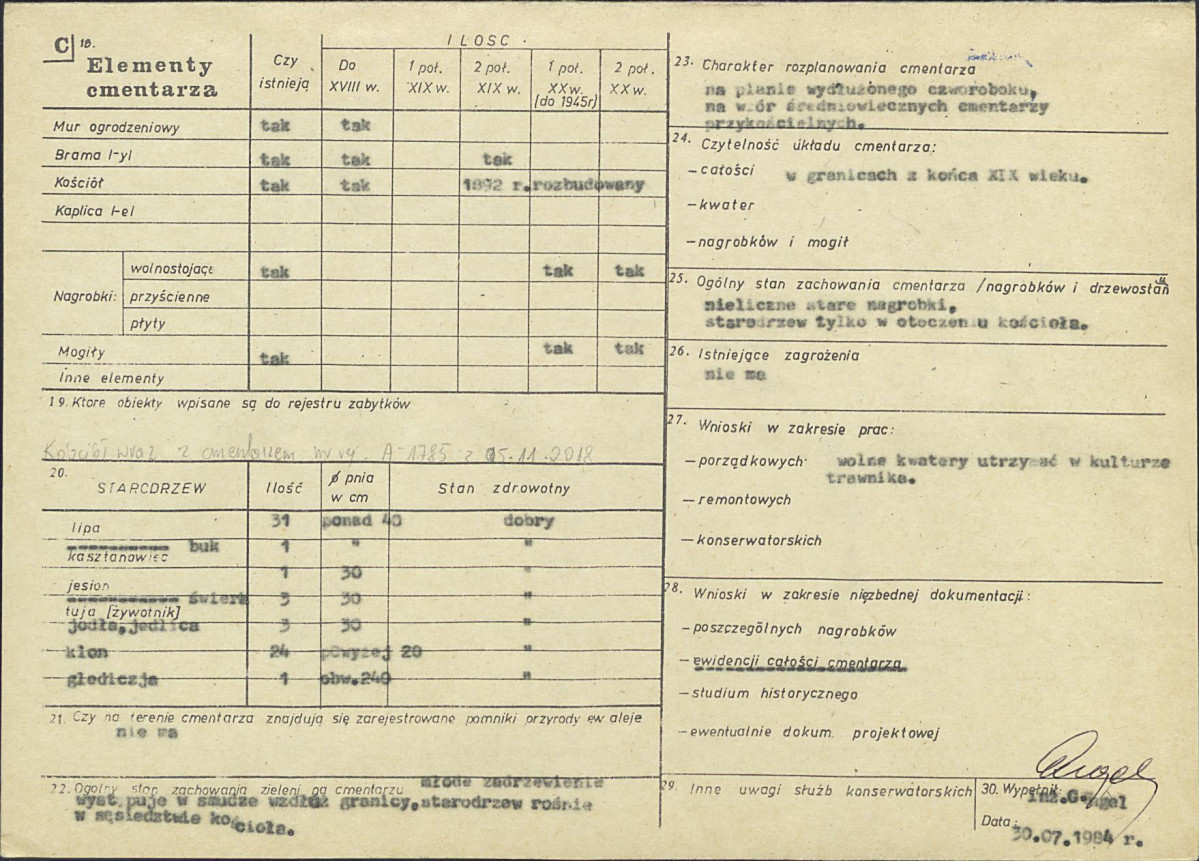 C 18.
Elementy
cmentarza
Czy
istnieją
ILOSC
Do
XVIII w.
1 poł.
XIX w.
2 poł.
XIX w.
1 poł.
XXw.
(do 1945r)
2 poł.
XX w.
Mur ogrodzeniowy tak tak
Brama /-y/ tak tak tak
Kościół tak tak 1892 r. rozbudowany
Kaplica /-e/
Nagrobki: wolnostojące tak tak tak
przyścienne
płyty
Mogiły tak tak tak
Inne elementy
19. Ktore obiekty wpisane są do rejestru zabytków
Kościół wraz z cmentarzem nr rej. A-1785 z 05.11.2018
20.
STARODRZEW Ilość ø pnia
w cm Stan zdrowotny
lipa 31 ponad 40 dobry
buk 1 " "
kasztanowiec
1 30 "
jesion
świerk 3 30 "
tuja [żywotnik]
jodła, jedlica 3 30 "
klon 24 powyżej 20 "
glediczja 1 obw.240 "
21. Czy na terenie cmentarza znajdują się zarejestrowane pomniki przyrody ew aleje
nie ma
22. Ogolny stan zachowania zieleni na cmentarzu młode zadrzewienie
wyst puje w smudze wzdłuż granicy, starodrzew rośnie
w sąsiedztwie kościoła.
23. Charakter rozplanowania cmentarza
na planie wydłużonego czworoboku,
na wzór średniowiecznych cmentarzy
przykościelnych.
24. Czytelność układu cmentarza:
- całości w granicach z końca XIX wieku.
- kwater
- nagrobków i mogił
25. Ogólny stan zachowania cmentarza /nagrobków i drzewostanu
nieliczne stare nagrobki,
starodrzew tylko w otoczeniu kościoła.
26. Istniejące zagrożenia
nie ma
27. Wnioski w zakresie prac:
- porządkowych wolne kwatery utrzymać w kulturze
trawnika.
- remontowych
- konserwatorskich
28. Wnioski w zakresie niezbednej dokumentacji:
- poszczególnych nagrobków
- ewidencji całości cmentarza
- studium historycznego
- ewentualnie dokum. projektowej
29. Inne uwagi służb konserwatorskich
30. Wypełnił:
inż.G.
Data:
30.07.1984 r.